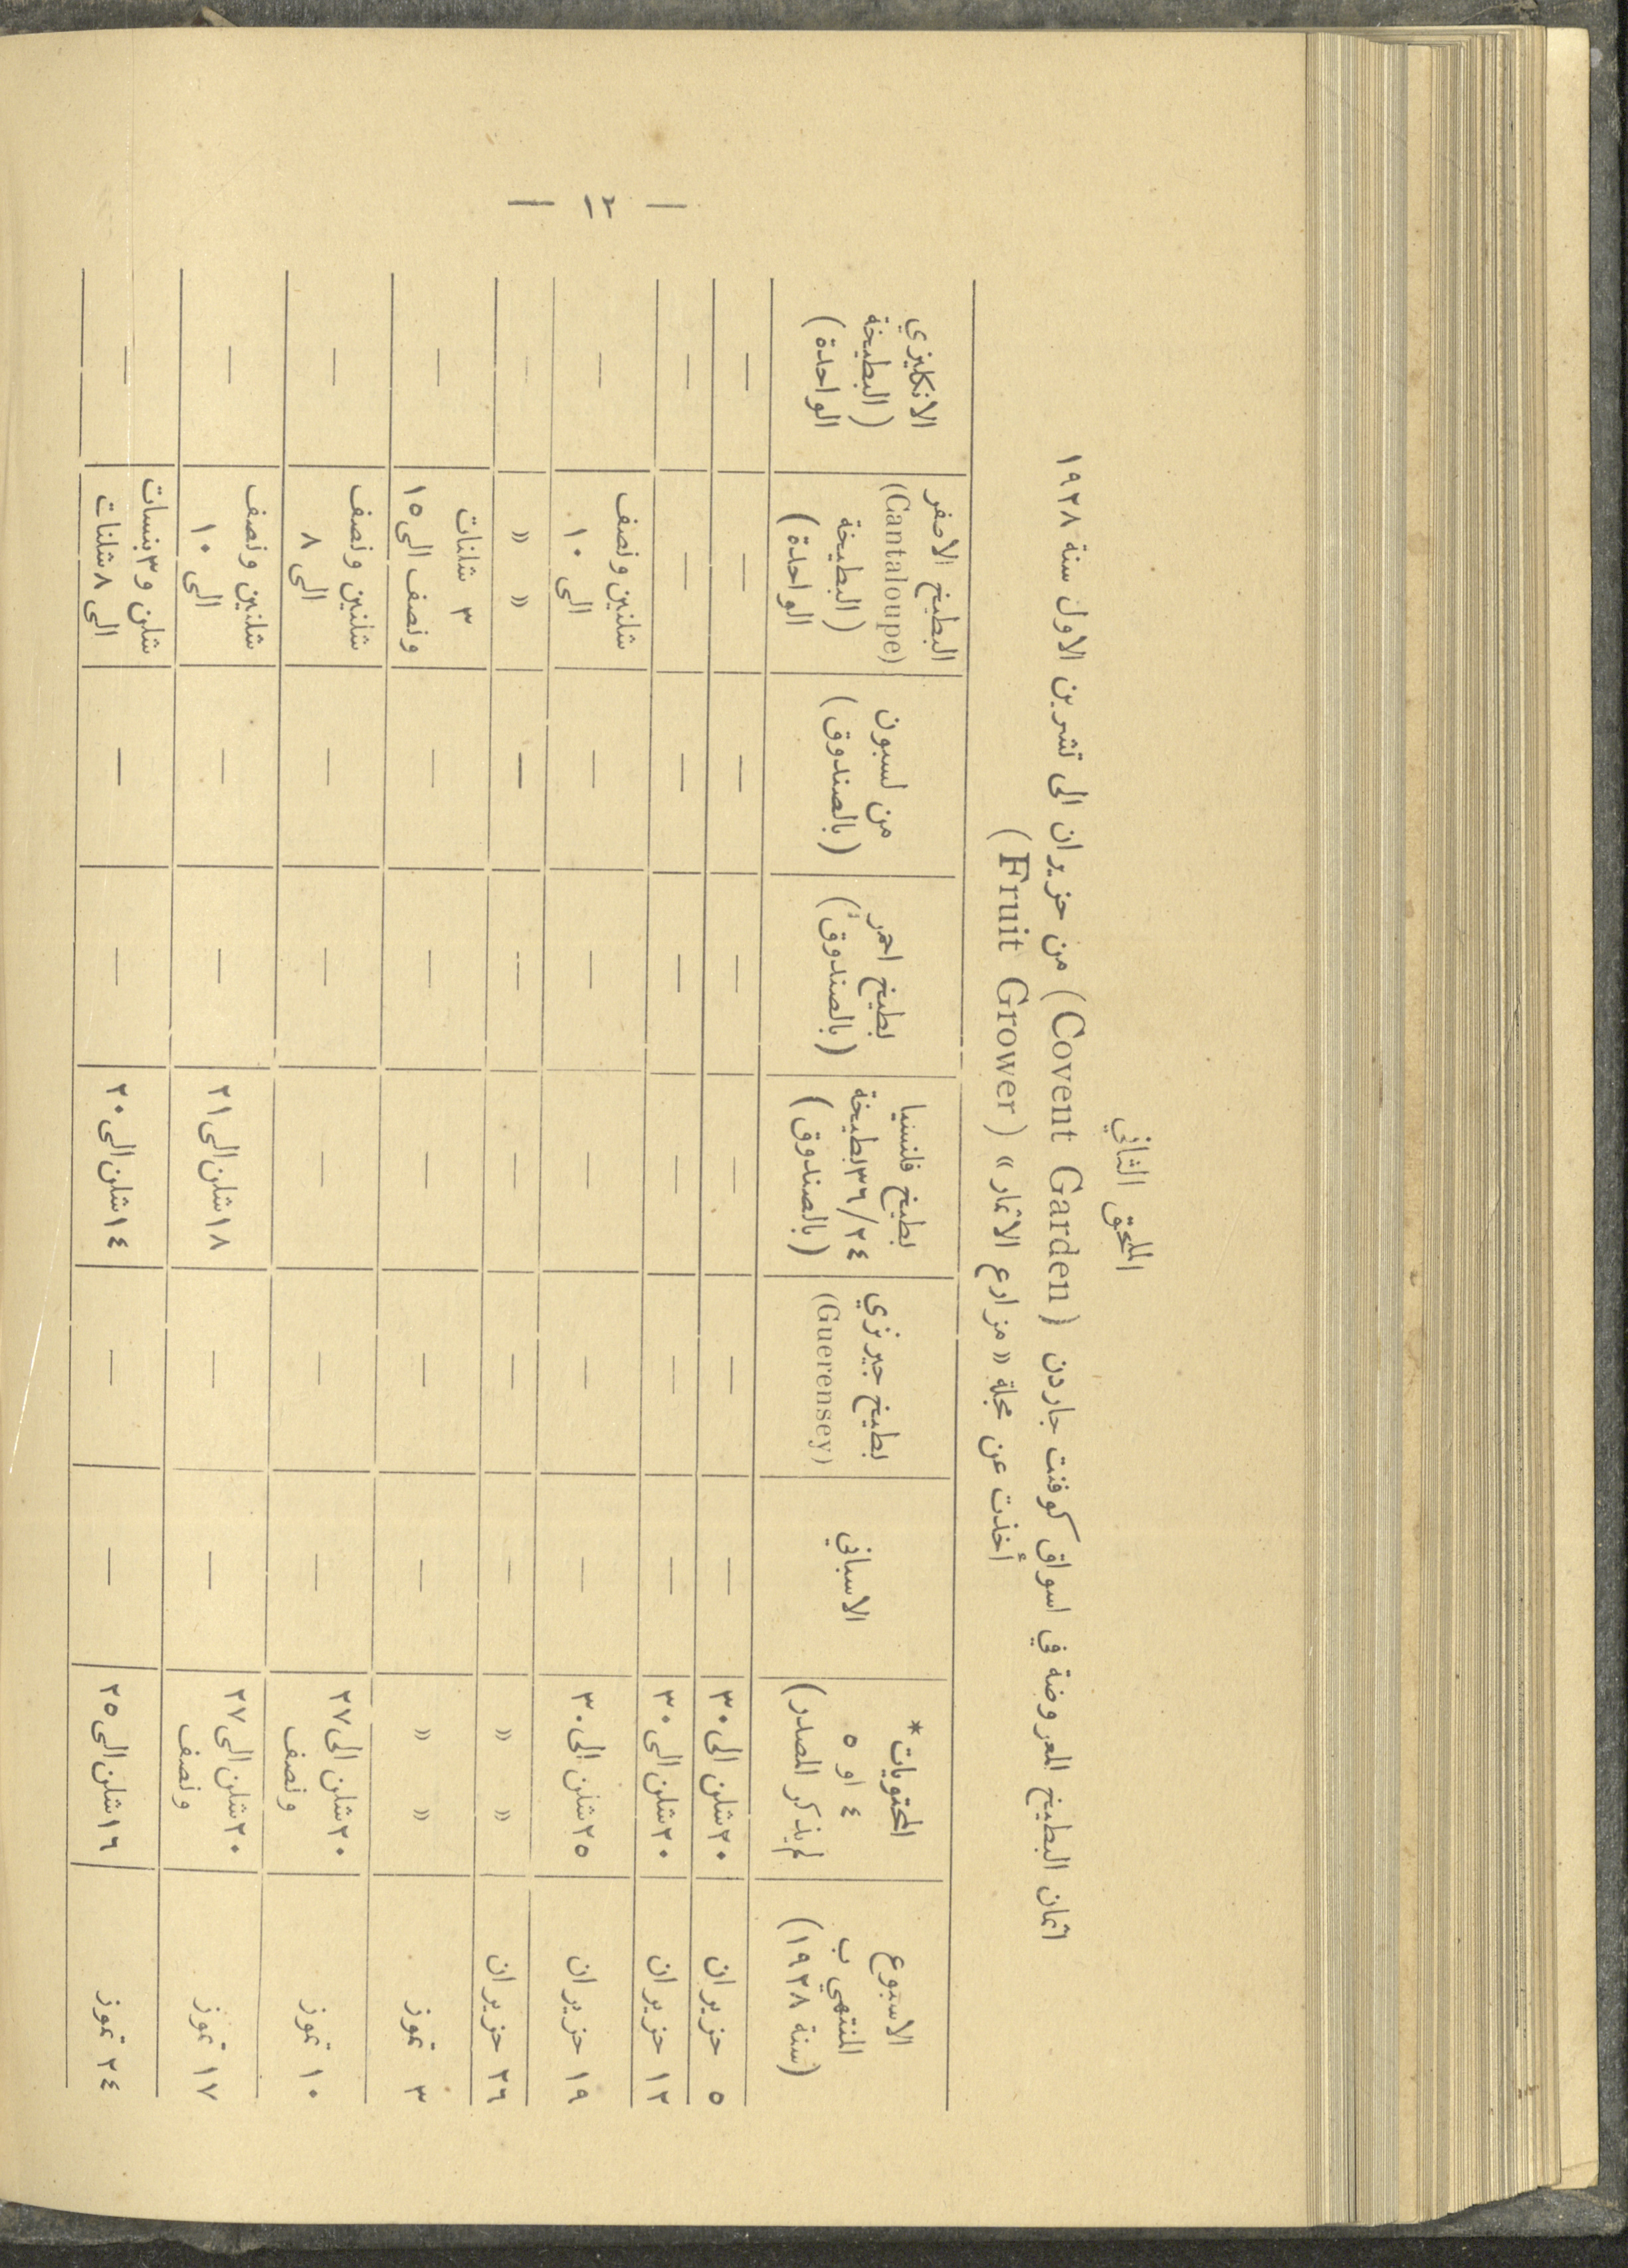 الملحق الثاني
اثمان البطيخ المعروضة في اسواق كوفنت جاردن (Covent Garden) من حزيران الى تشرين الاول سنة ١٩٢٨
أخذت عن مجلة «مزارع الاثمار» (Fruit Grower)
الاسبوع المنتهي ب (سنة ١٩٢٨) | المحتويات* ٤ او ٥ لم يذكر المصدر) | الاسباني | بطيخ جيرزي (Guerensey) | بطيخ فلنسيا ٣٦/٢٤ بطيخة (بالصندوق) | بطيخ احمر (بالصندوق) | من لسبون (بالصندوق) | البطيخ الاصفر (Cantaloupe) (البطيخة الواحدة) | الانكليزي (البطيخة الواحدة)
٥ حزيران | ٢٠ شلن الى ٣٠ | — | — | — | — | — | — | —
١٢ حزيران | ٢٠ شلن الى ٣٠ | — | — | — | — | — | — | —
١٩ حزيران | ٢٥ شلن الى ٣٠ | — | — | — | — | — | شلنين ونصف الى ١٠ | —
٢٦ حزيران | » » | — | — | — | — | — | » » | —
٣ تموز | » » | — | — | — | — | — | ٣ شلنات ونصف الى ١٥ | —
١٠ تموز | ٢٠ شلن الى ٢٧ ونصف | — | — | — | — | — | شلنين ونصف الى ٨ | —
١٧ تموز | ٢٠ شلن الى ٢٧ ونصف | — | — | ١٨ شلن الى ٢١ | — | — | شلنين ونصف الى ١٠ | —
٢٤ تموز | ١٦ شلن الى ٢٥ | — | — | ١٤ شلن الى ٢٠ | — | — | شلن و٣ بنسات الى ٨ شلنات | —
— ١٢ —